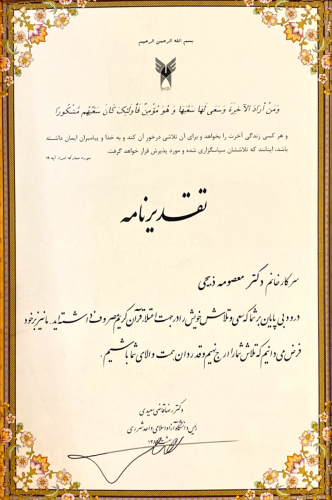 بسم الله الرحمن الرحیم
وَمَنْ أَرَادَ الآخِرَةَ وَسَعَى لَهَا سَعْيَهَا وَ هُوَ مُؤْمِنٌ فَأُولَئِكَ كَانَ سَعْيُهُم مَّشْكُورًا
و هر کسی زندگی آخرت را بخواهد و برای آن تلاشی درخور آن کند و به خدا و پیامبران ایمان داشته
باشد، اینانند که تلاششان سپاسگزاری شده و مورد پذیرش قرار خواهد گرفت.
سوره مبارکه اسراء آیه ۱۹
تقدیرنامه
سرکار خانم دکتر معصومه ذبیحی
درود بی پایان بر شما که سعی و تلاش خویش را در جهت اعتلاء قرآن کریم مصروف داشته اید. ما نیز بر خود
فرض می دانیم که تلاش شما را ارج نهیم و قدردان همت والای شما باشیم.
دکتر رضا قاضی سعیدی
رئیس دانشگاه آزاد اسلامی واحد شهرری